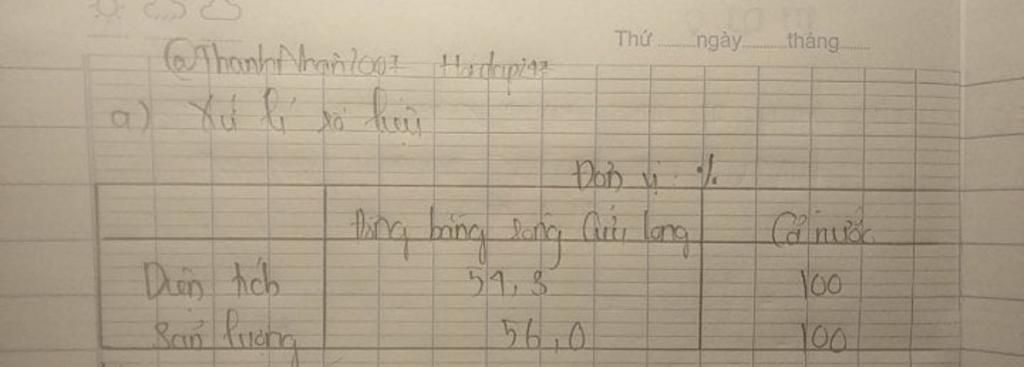 Thứ ........ngày.........tháng.......
@ThanhNhan2007 Hoidap247
a) Xử lí số liệu
Đơn vị %
Đồng bằng sông Cửu Long Cả nước
Diện tích 51,3 100
Sản lượng 56,0 100